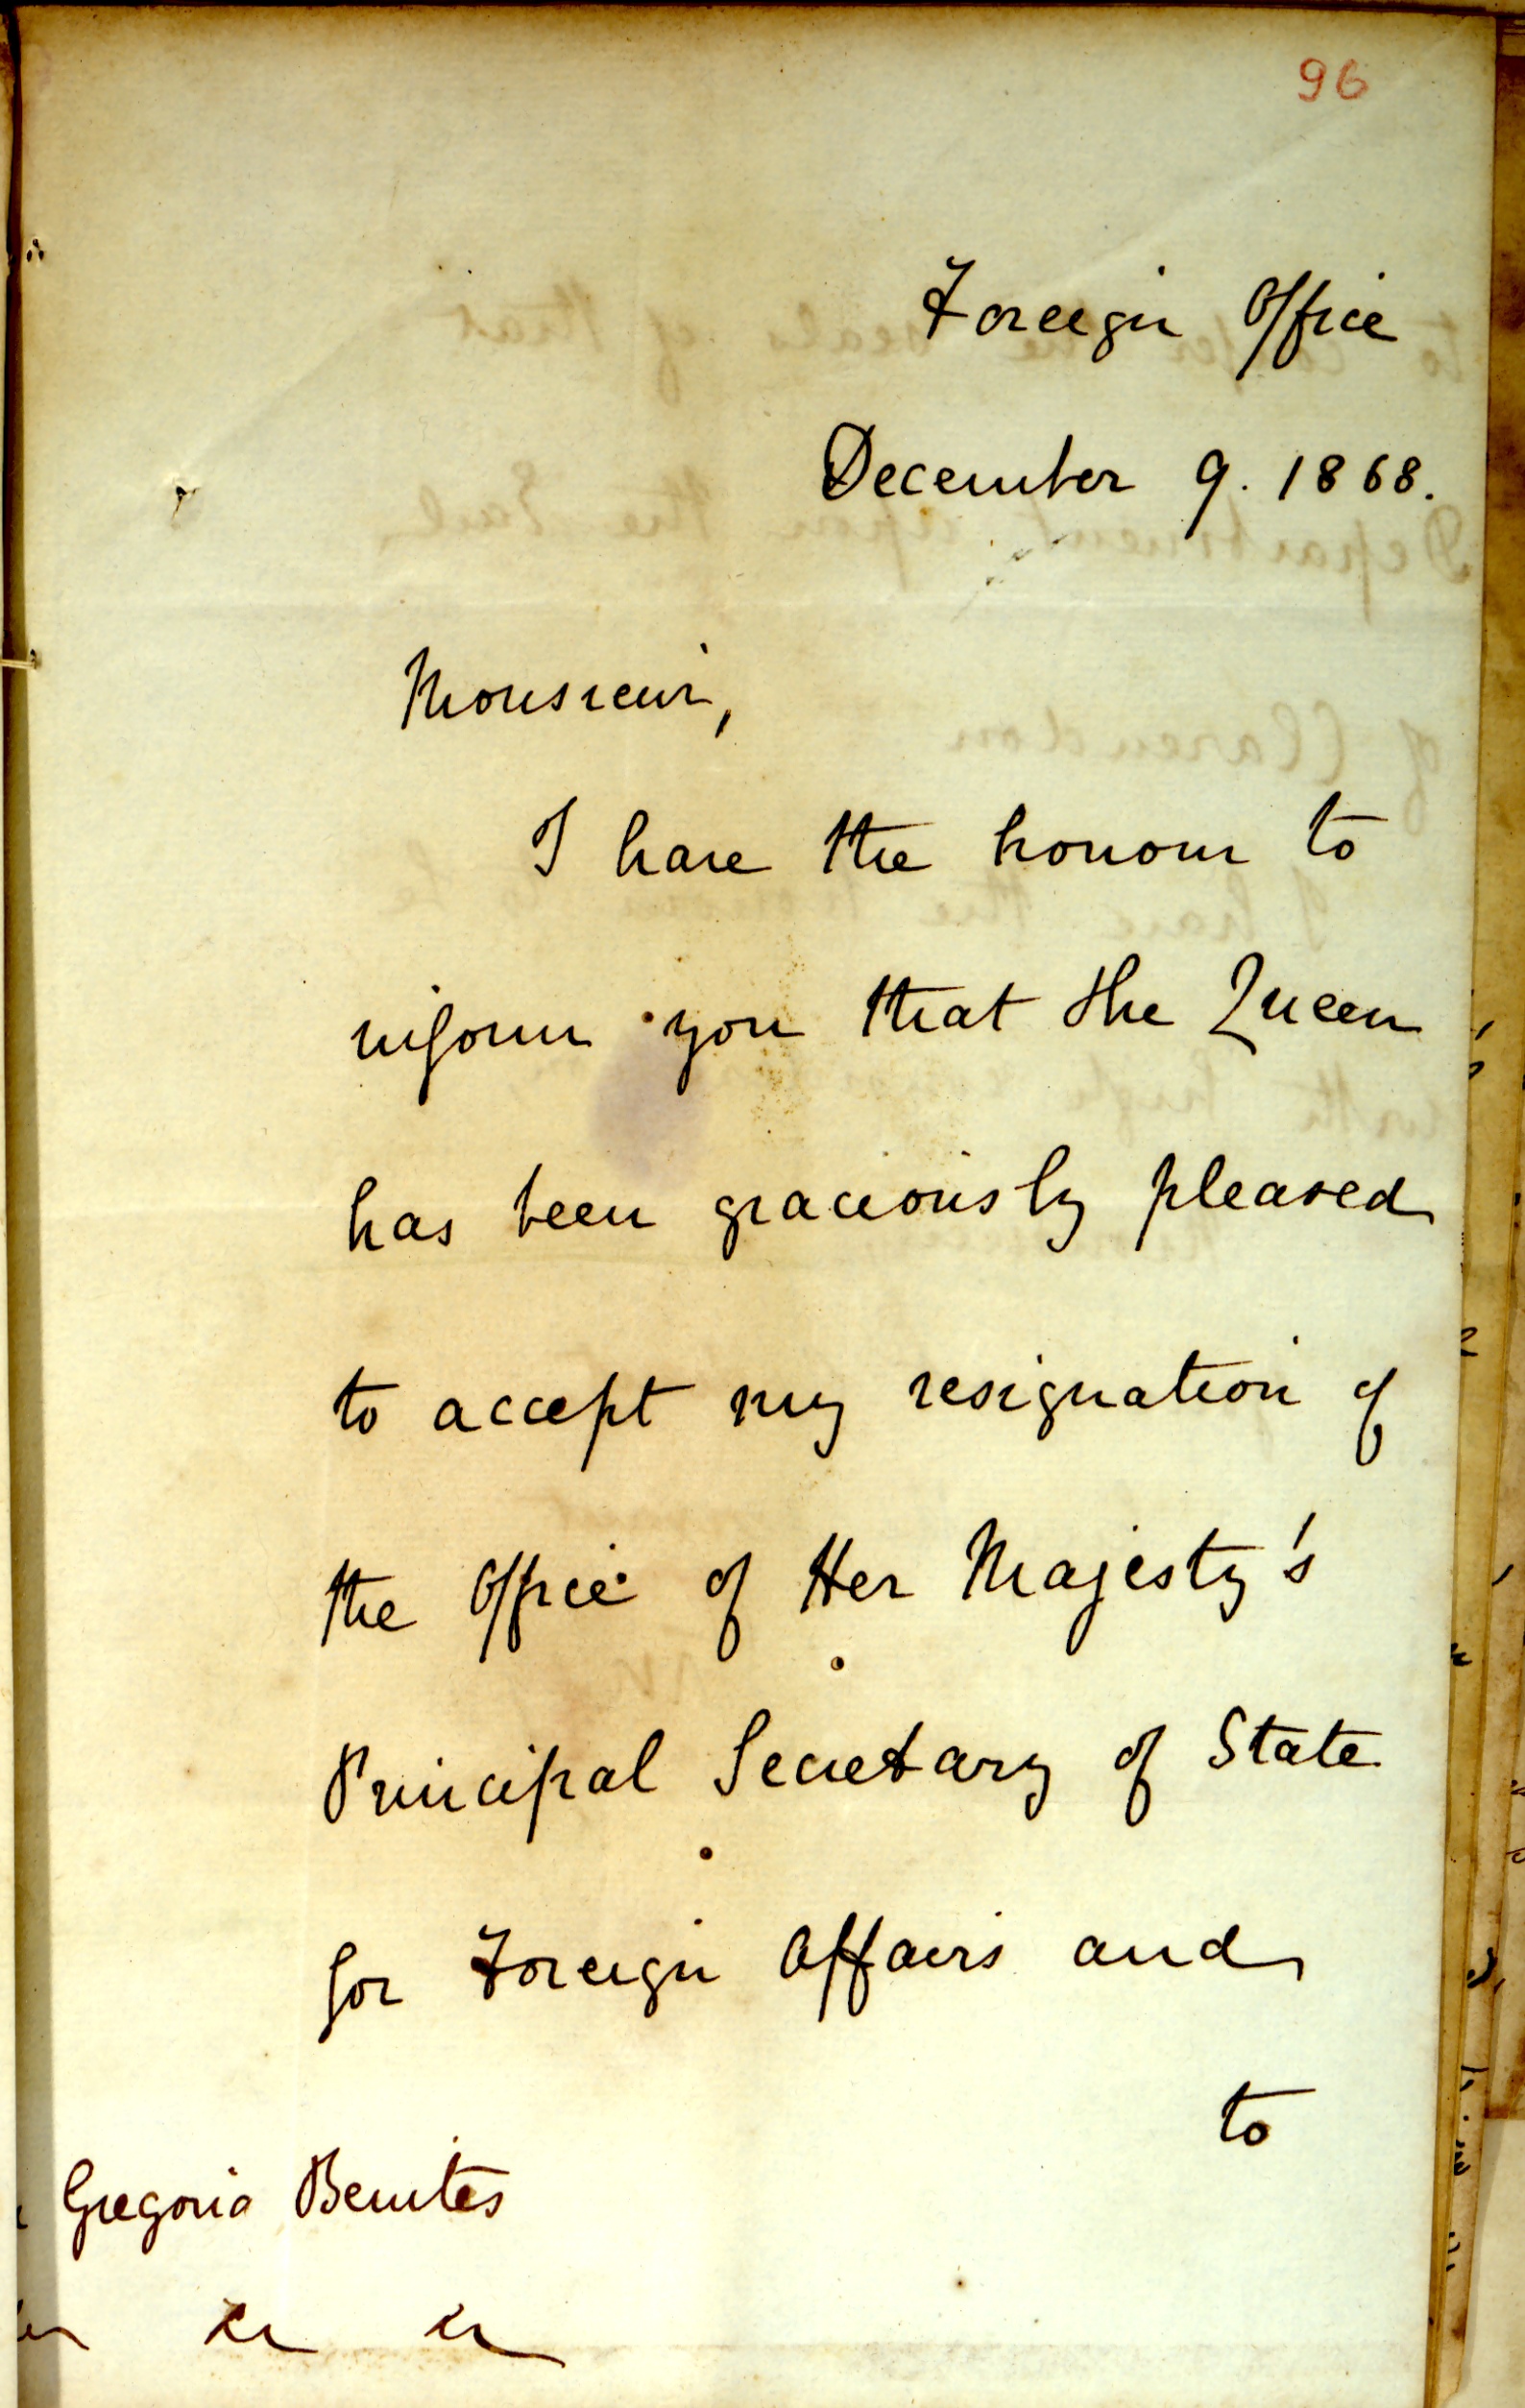 96
Foreign Office
December 9. 1868.
Monsieur,
I have the honour to
inform you that the Queen
has been graciously pleased
to accept my resignation of
the Office of Her Majesty's
Principal Secretary of State
for Foreign Affairs and
to
Gregorio Benites
&c &c